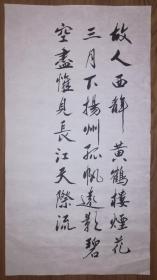 故人西辭黃鶴樓煙花
三月下揚州孤帆遠影碧
空盡惟見長江天際流